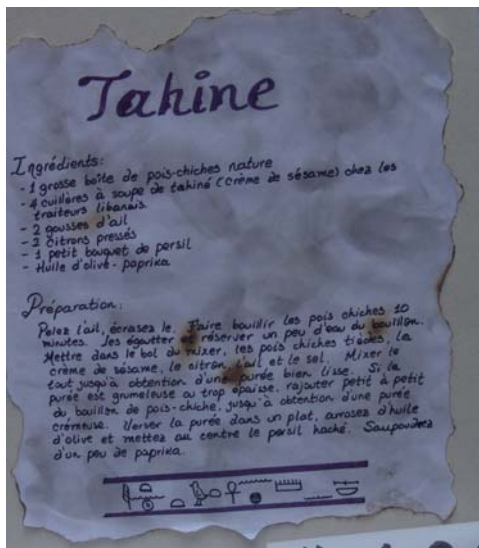 Tahine
Ingrédients:
- 1 grosse boîte de pois-chiches nature
- 4 cuillères à soupe de tahiné (crème de sésame) chez les
traiteurs libanais
- 2 gousses d'ail
- 2 citrons pressés
- 1 petit bouquet de persil
- Huile d'olive - paprika
Préparation:
Pelez l'ail, écrasez le. Faire bouillir les pois chiches 10
minutes. Les égoutter et réserver un peu d'eau du bouillon.
Mettre dans le bol du mixer, les pois chiches tièdes, la
crème de sésame, le citron, l'ail et le sel. Mixer le
tout jusqu'à obtention d'une purée bien lisse. Si la
purée est grumeleuse ou trop épaisse, rajouter petit à petit
du bouillon de pois-chiche, jusqu'à obtention d'une purée
crémeuse. Verser la purée dans un plat, arrosez d'huile
d'olive et mettez au centre le persil haché. Saupoudrez
d'un peu de paprika.